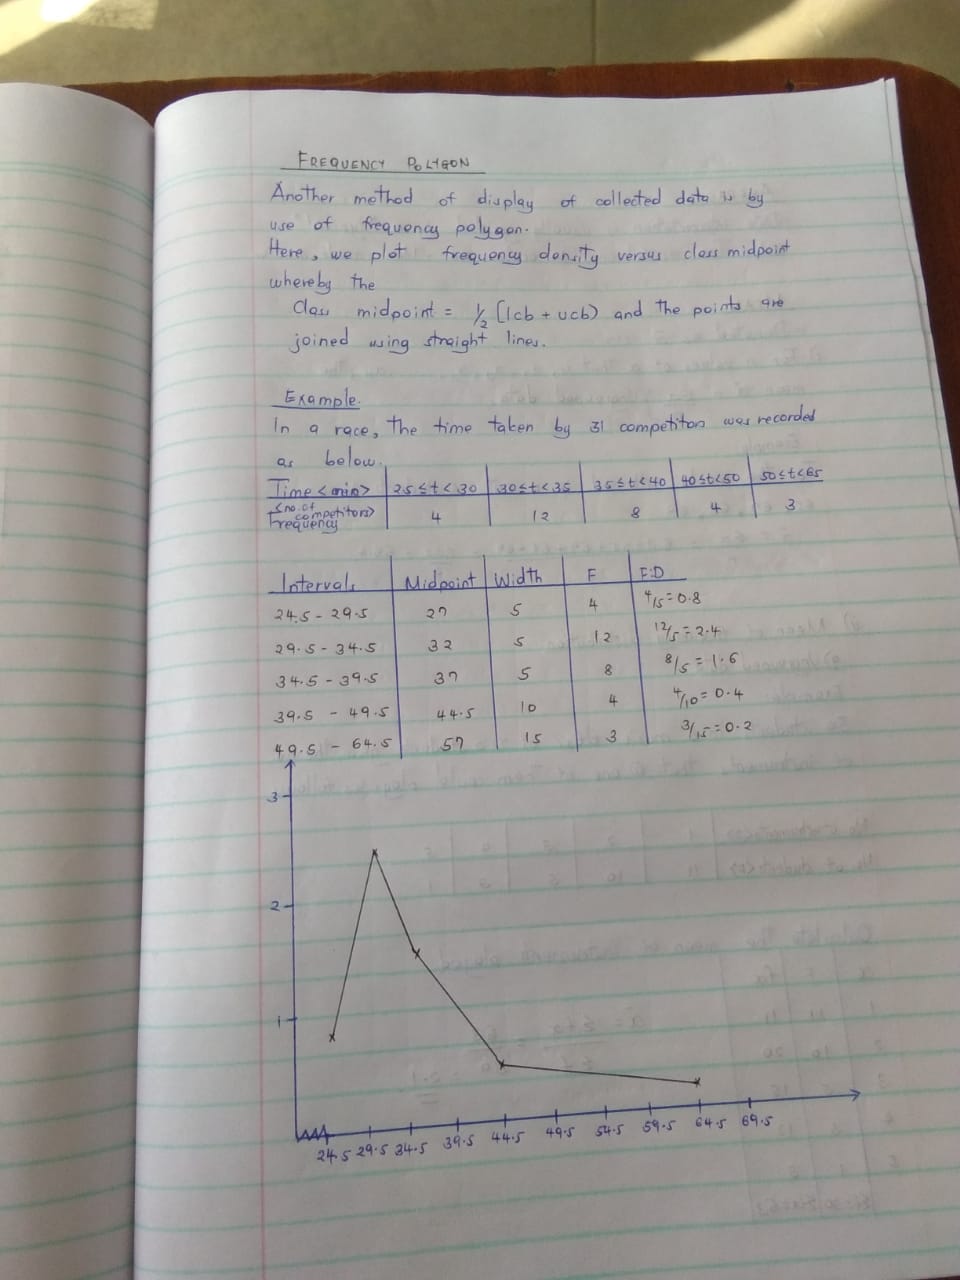 FREQUENCY POLYGON
Another method of display of collected data is by
use of frequency polygon.
Here, we plot frequency density versus class midpoint
whereby the
Class midpoint = 1/2 [lcb + ucb) and the points are
joined using straight lines.
Example.
In a race, the time taken by 31 competitors was recorded
as below.
Time <min> | 25≤t<30 | 30≤t<35 | 35≤t<40 | 40≤t<50 | 50≤t<65
<no. of competitors> Frequency | 4 | 12 | 8 | 4 | 3
Intervals | Midpoint | Width | F | F.D
24.5 - 29.5 | 27 | 5 | 4 | 4/5 = 0.8
29.5 - 34.5 | 32 | 5 | 12 | 12/5 = 2.4
34.5 - 39.5 | 37 | 5 | 8 | 8/5 = 1.6
39.5 - 49.5 | 44.5 | 10 | 4 | 4/10 = 0.4
49.5 - 64.5 | 57 | 15 | 3 | 3/15 = 0.2
3
2
1
24.5 29.5 34.5 39.5 44.5 49.5 54.5 59.5 64.5 69.5